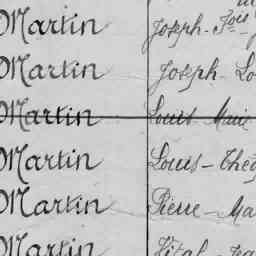 Martin Joseph - Fois -
Martin Joseph Lo
Martin Louis Marie
Martin Louis - Théo
Martin Pierre - Ma
Martin Vital